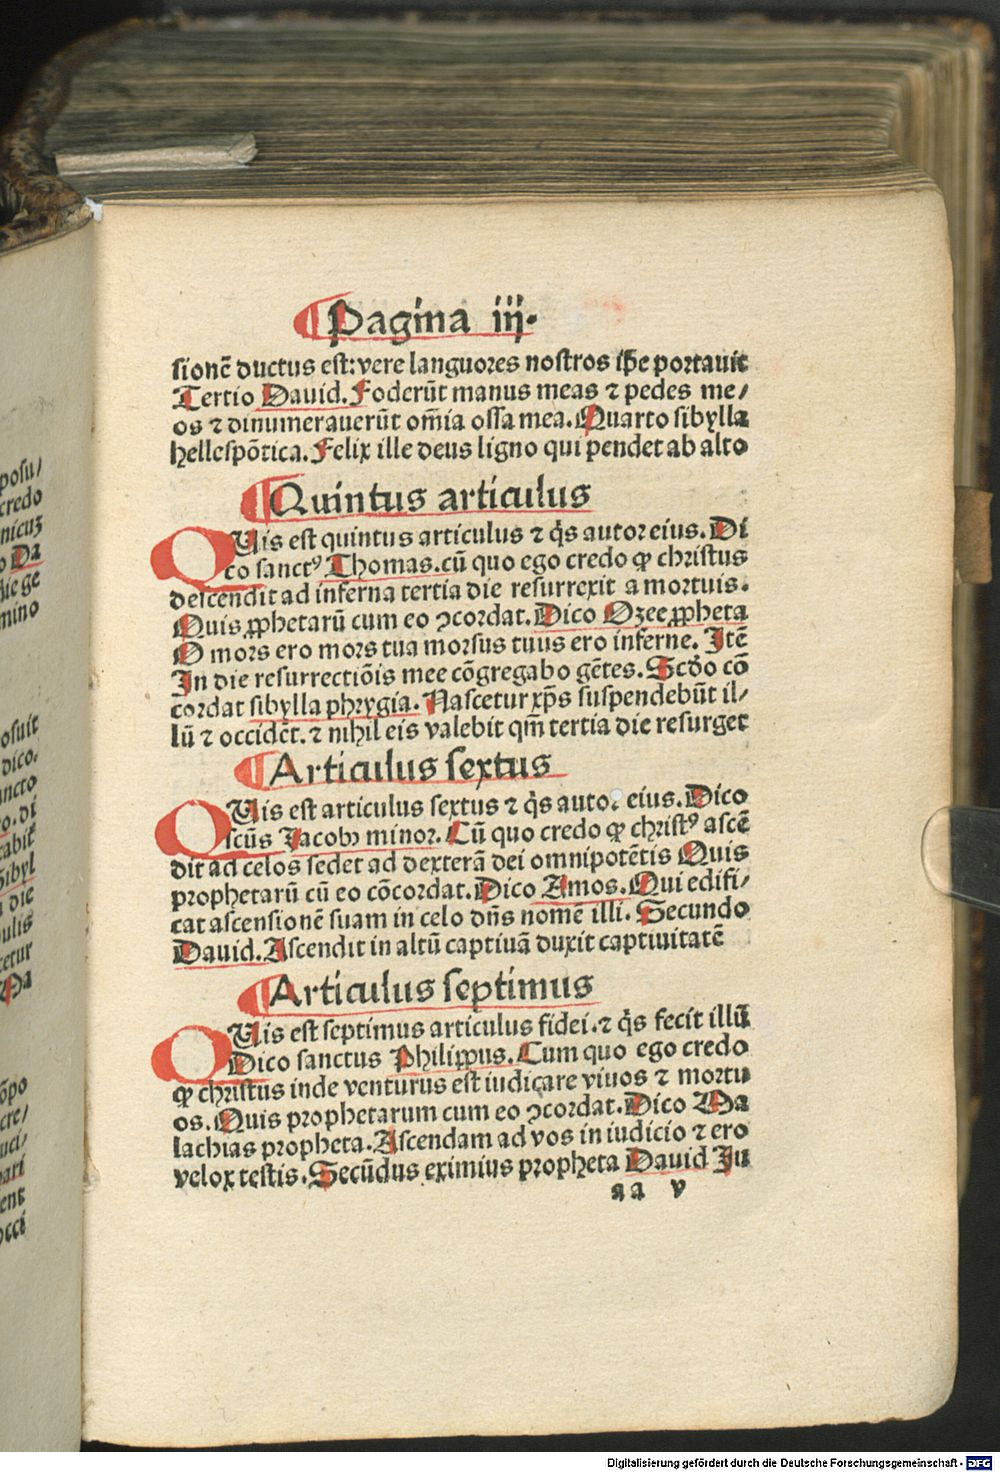 ¶Pagina iij.
sionē ductus est: vere languores nostros ip̄e portauit
Tertio Dauid. Foderūt manus meas ⁊ pedes me/
os ⁊ dinumerauerūt om̄ia ossa mea. Quarto sibylla
hellespōtica. Felix ille deus ligno qui pendet ab alto
¶Quintus articulus
QUis est quintus articulus ⁊ q̇s autor eius. Di
co sanctꝰ Thomas. cū quo ego credo ꝙ christus
descendit ad inferna tertia die resurrexit a mortuis.
Quis ꝓphetarū cum eo ꝯcordat. Dico Ozee ꝓpheta
O mors ero mors tua morsus tuus ero inferne. Itē
In die resurrectiōis mee cōgregabo gētes. Scd̄o cō
cordat sibylla phrygia. Nascetur xp̄s suspendebūt il/
lū ⁊ occidēt. ⁊ nihil eis valebit qm̄ tertia die resurget
¶Articulus sextus
QUis est articulus sextus ⁊ q̇s auto. eius. Dico
scūs Jacobꝰ minor. Cū quo credo ꝙ christꝰ ascē
dit ad celos sedet ad dexterā dei omnipotētis Quis
prophetarū cū eo cōcordat. Dico Amos. Qui edifi/
cat ascensionē suam in celo dn̄s nomē illi. Secundo
Dauid. Ascendit in altū captiuā duxit captiuitatē
¶Articulus septimus
QUis est septimus articulus fidei. ⁊ q̇s fecit illū
Dico sanctus Philippus. Cum quo ego credo
ꝙ christus inde venturus est iudicare viuos ⁊ mortu
os. Quis prophetarum cum eo ꝯcordat. Dico Ma
lachias propheta. Ascendam ad vos in iudicio ⁊ ero
velox testis. Secūdus eximius propheta Dauid Ju
aa v
posu/
credo
nicuꝫ
Da
ge
mino
osuit
dico.
ncto
di
cabit
Sibyl
die
ulis
cetur
Ma
ōpo
cre/
uci/
pari
ent
occi
Digitalisierung gefördert durch die Deutsche Forschungsgemeinschaft - DFG